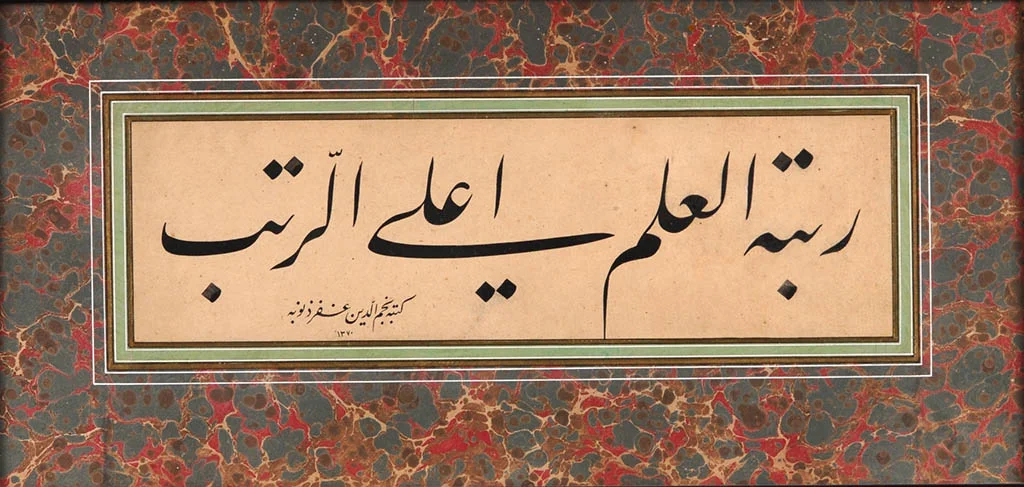 رتبة العلم اعلى الرّتب
كتبه نجم الدّين غفر ذنوبه
١٣٧٠